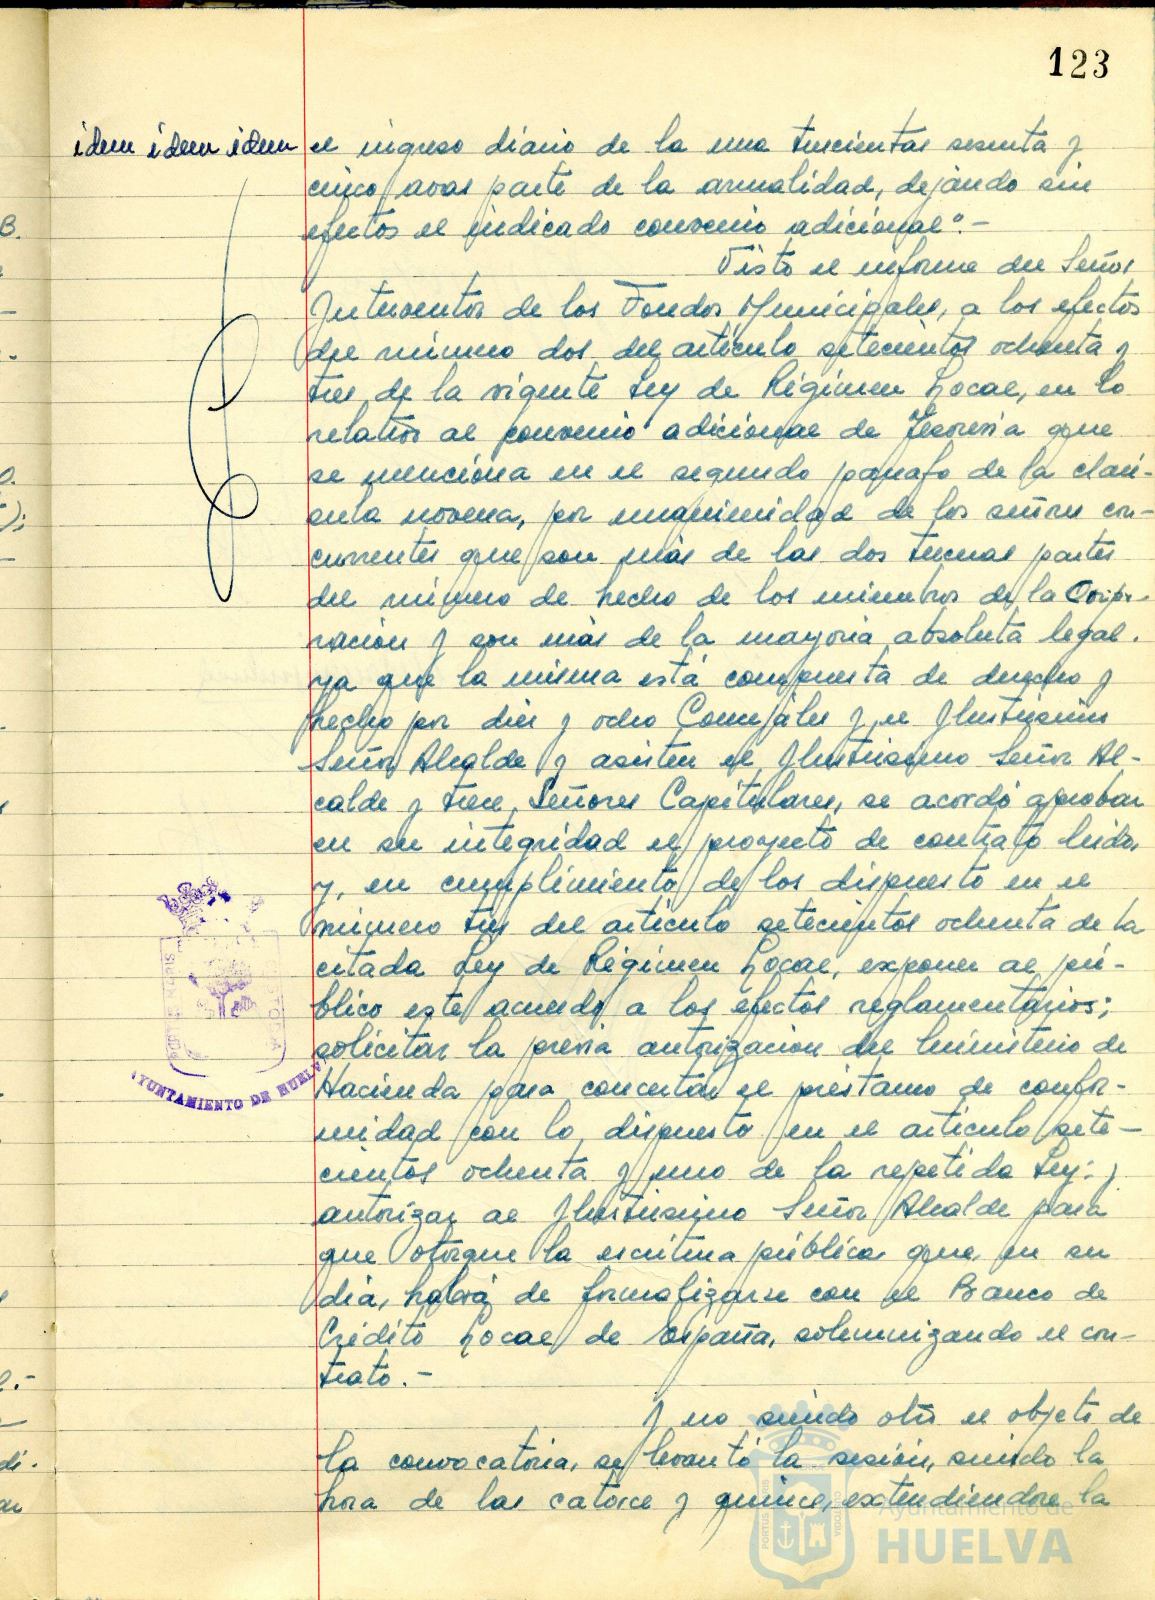 123
idem idem idem
el ingreso diario de la una trescientas sesenta y
cinco avas parte de la anualidad, dejando sin
efectos el indicado convenio adicional".-
Visto el informe del Señor
Interventor de los Fondos Municipales, a los efectos
del número dos del artículo setecientos ochenta y
tres de la vigente Ley de Régimen Local, en lo
relativo al convenio adicional de Tesorería que
se menciona en el segundo párrafo de la cláu-
sula novena, por unanimidad de los señores con-
currentes que son más de las dos terceras partes
del número de hecho de los miembros de la Corpo-
ración y son más de la mayoría absoluta legal.
ya que la misma está compuesta de derecho y
hecho por diez y ocho Concejales y el Ilustrísimo
Señor Alcalde y asisten el Ilustrísimo Señor Al-
calde y trece Señores Capitulares, se acordó aprobar
en su integridad el proyecto de contrato leido,
y, en cumplimiento de los dispuesto en el
número tres del artículo setecientos ochenta de la
citada Ley de Régimen Local, exponer al pú-
blico este acuerdo a los efectos reglamentarios;
solicitar la previa autorización del Ministerio de
Hacienda para concertar el préstamo de confor-
midad con lo dispuesto en el artículo sete-
cientos ochenta y uno de la repetida Ley; y
autorizar al Ilustrísimo Señor Alcalde para
que otorgue la escritura pública que, en su
día, habrá de formalizarse con el Banco de
Crédito Local de España, solemnizando el con-
trato.-
Y no siendo otro el objeto de
la convocatoria, se levantó la sesión, siendo la
hora de las catorce y quince, extendiendose la
AYUNTAMIENTO DE HUELVA
PORTUS MARIS
CUSTODIA
Ayuntamiento de
HUELVA